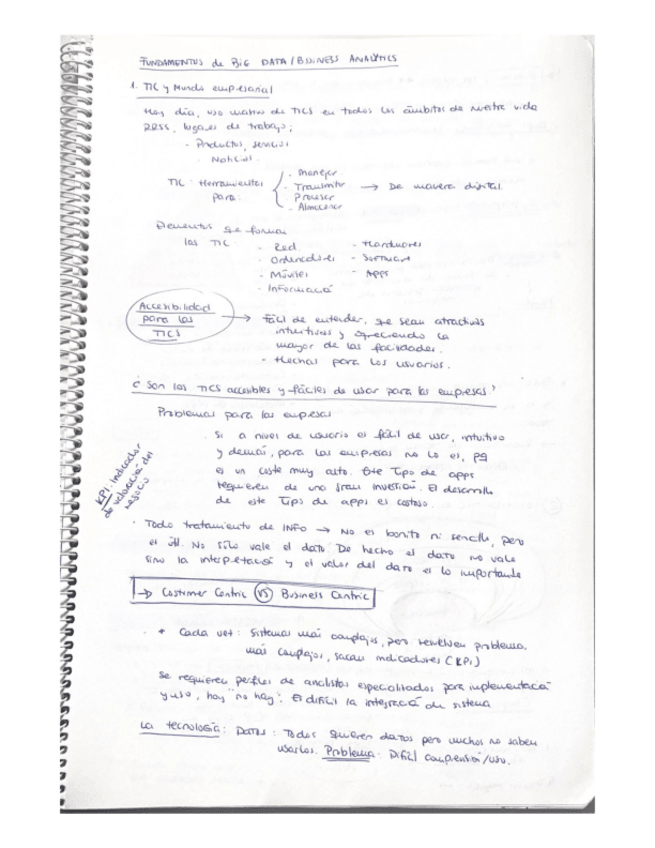 FUNDAMENTOS de BIG DATA / BUSINESS ANALYTICS
1. TIC y Mundo empresarial
Hoy día, uso masivo de TICS en todos los ámbitos de nuestra vida
RRSS, lugares de trabajo;
- Productos, servicios
- Noticias
TIC: Herramientas para:
- Manejar
- Transmitir → De manera digital.
- Procesar
- Almacenar
Elementos que forman
las TIC
- Red.
- Ordenadores
- Móviles
- Informació
- Hardwares
- Software
- Apps
Accesibilidad
para las
TICS
→ Fácil de entender, que sean atractivas
intuitivas y ofreciendo la
mayor de las facilidades.
- Hechas para los usuarios.
¿Son las TICS accesibles y fáciles de usar para las empresas?
Problemas para las empresas
. Si a nivel de usuario es fácil de usar, intuitivo
y demás, para las empresas no lo es, pq
es un coste muy alto. Este tipo de apps
requieren de una gran inversión. El desarrollo
de este tips de apps es costoso.
KPI: Indicador
de valoración del
negocio
· Todo tratamiento de INFO → No es bonito ni sencillo, pero
es útil. No sólo vale el dato. De hecho el dato no vale
sino la interpretació y el valor del dato es lo importante
→ Costumer Centric VS Business Centric
· + Cada vez: Sistemas más complejos, pero resuelven problema.
más complejos, sacan indicadores (KPI)
Se requieren perfiles de analistas especializados para implementació
y uso, hay "no hay". Es difícil la integració de sistema
La tecnología: Datos: Todos quieren datos pero muchos no saben
usarlos. Problema: Difícil comprensión/uso.